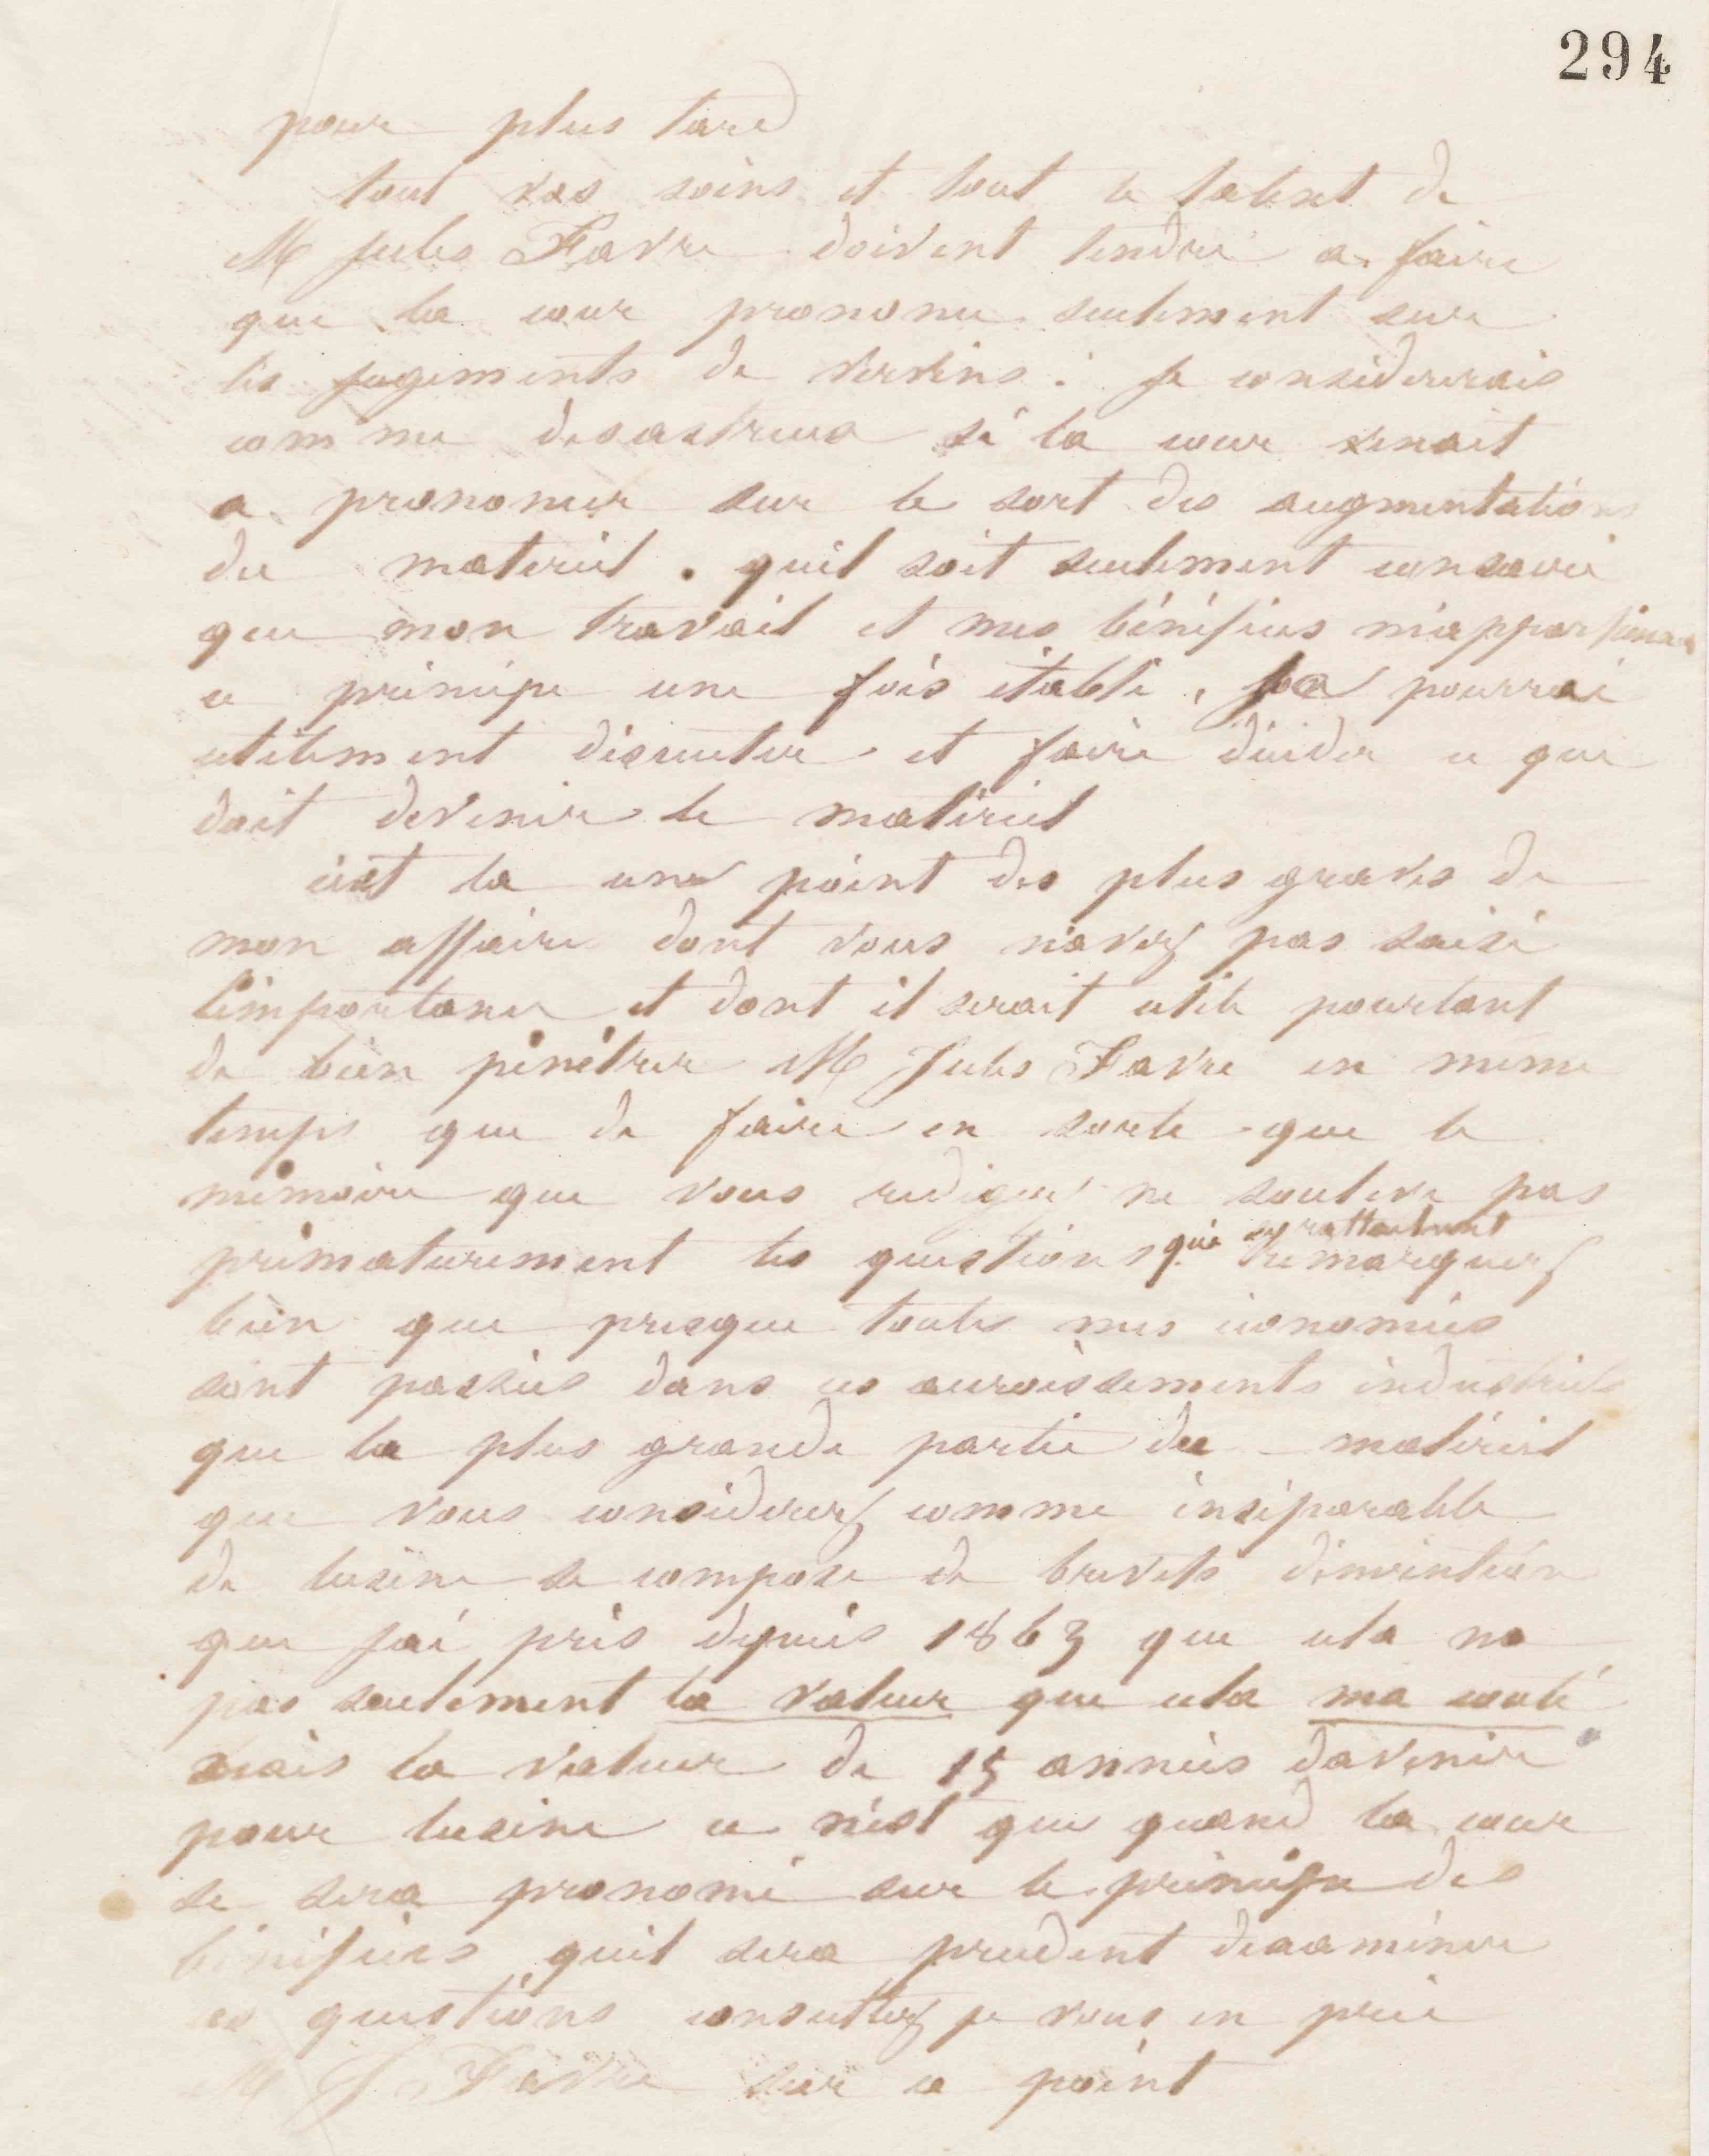 294
pour plus tard
tout vos soins et tout le talent de
M Jules Favre doivent tendre a faire
que la cour prononce seulement sur
les jugements de Vervins. je considererais
comme desastreux si la cour venait
a prononcer sur le sort des augmentations
du materiel. quil soit seulement consacré
que mon travail et mes bénéfices m'appartiennent
ce principe une fois établi, pourrai
utilement discuter et faire décider ce que
doit devenir le matériel
cest la un point des plus graves de
mon affaire dont vous n'avez pas saisi
l'importance et dont il serait utile pourtant
de bien pénétrer M Jules Favre en meme
temps que de faire en sorte que le
mémoire que vous redigez ne souleve pas
prématurement les questions qui sy rattachent remarquez
bien que presque toutes mes économies
sont passées dans ces accroissements industriels
que la plus grande partie du matériel
que vous considerez comme inséparable
de lusine se compose de brevets d'invention
que jai pris depuis 1863 que cela na
pas seulement la valeur que cela ma couté
mais la valeur de 15 années davenir
pour lusine ce n'est que quand la cour
se sera prononcé sur le principe des
bénéfices quil sera prudent dexaminer
ces questions consultez je vous en prie
M J Favre sur ce point